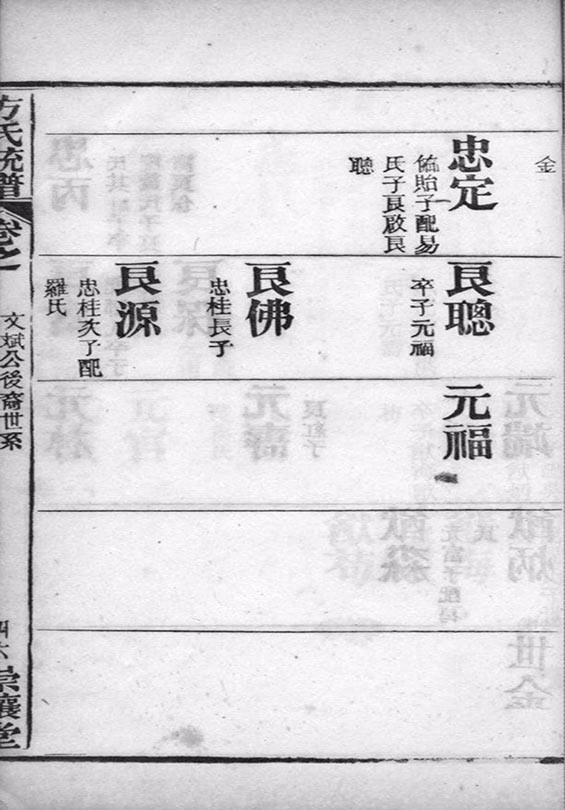 金
忠定
㒒貽子配易
氏子良啟良
聰
良聰
卒子元福
良佛
忠桂長子
良源
忠桂次子配
羅氏
元福
方氏統譜
卷之
文斌公後裔世系
四六
崇讓堂